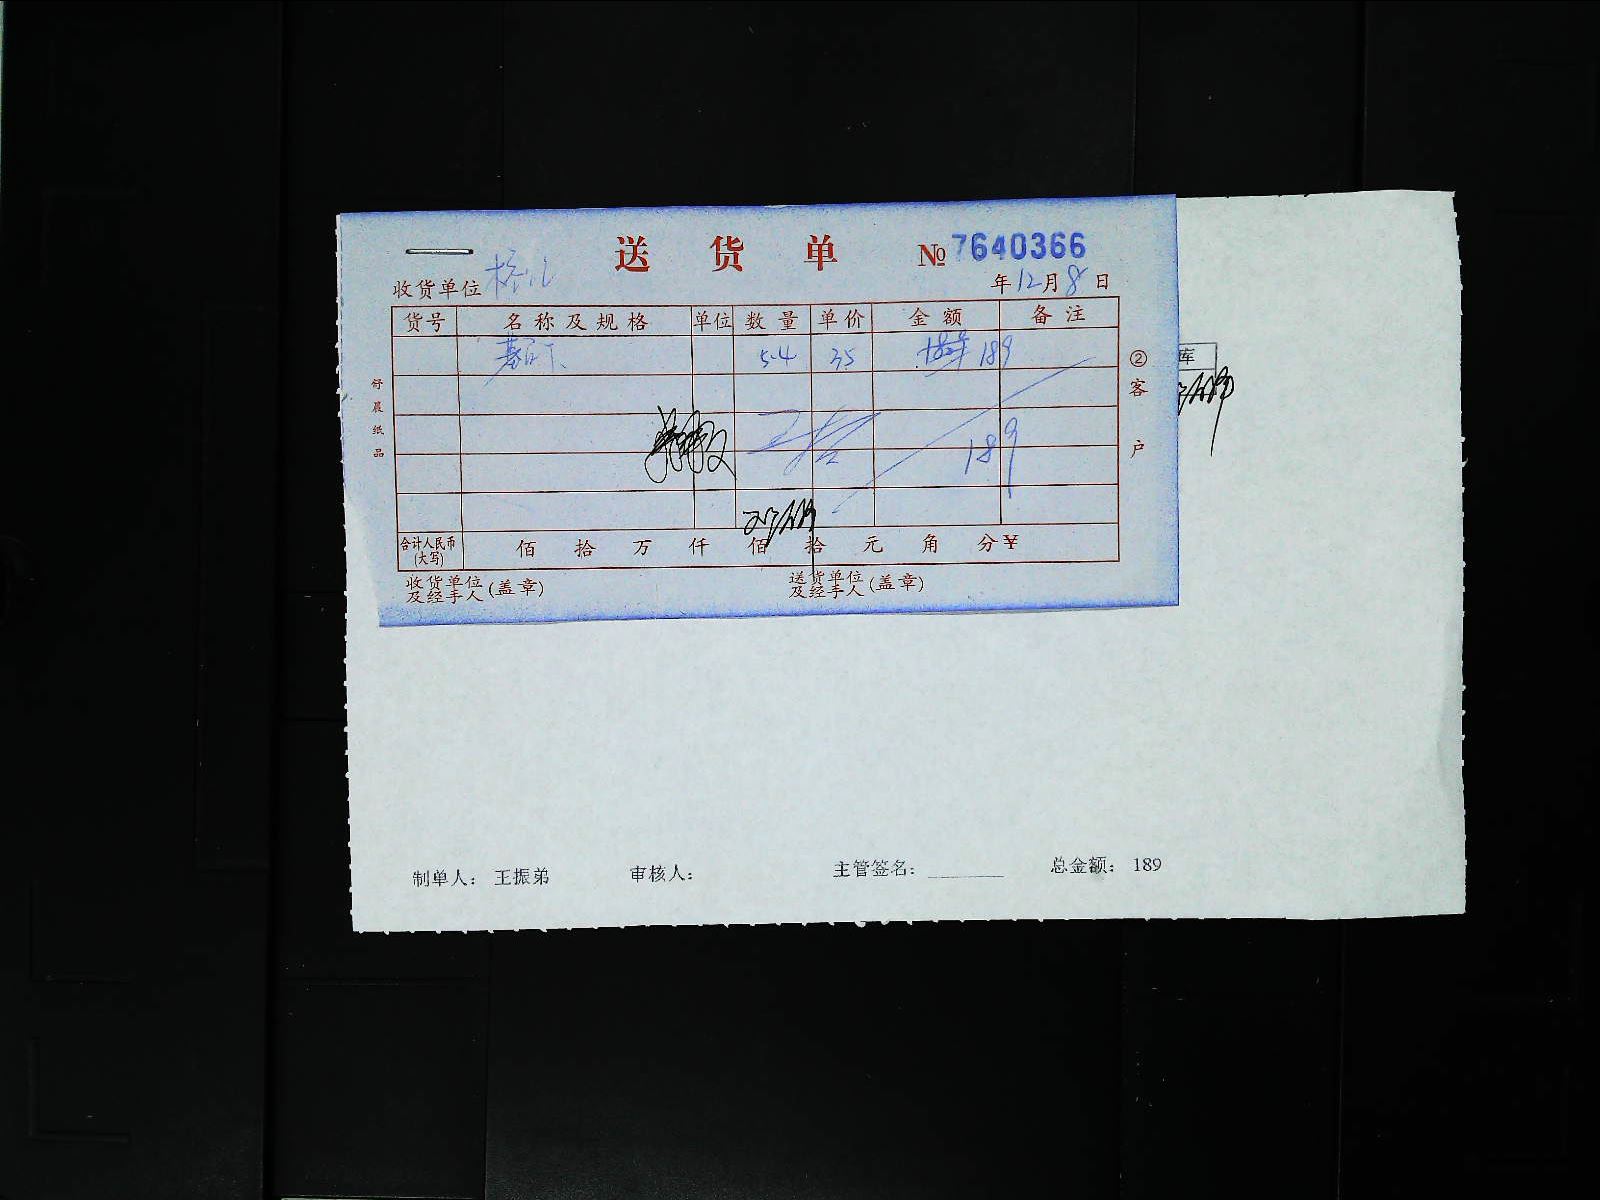 送货单 № 7640366
收货单位 年12月8日
货号 名称及规格 单位 数量 单价 金额 备注
5.4 35 189
189
合计人民币(大写) 佰 拾 万 仟 佰 拾 元 角 分 ¥
收货单位及经手人(盖章) 送货单位及经手人(盖章)
舒晨纸品
②客户
库
制单人: 王振弟 审核人: 主管签名: 总金额: 189